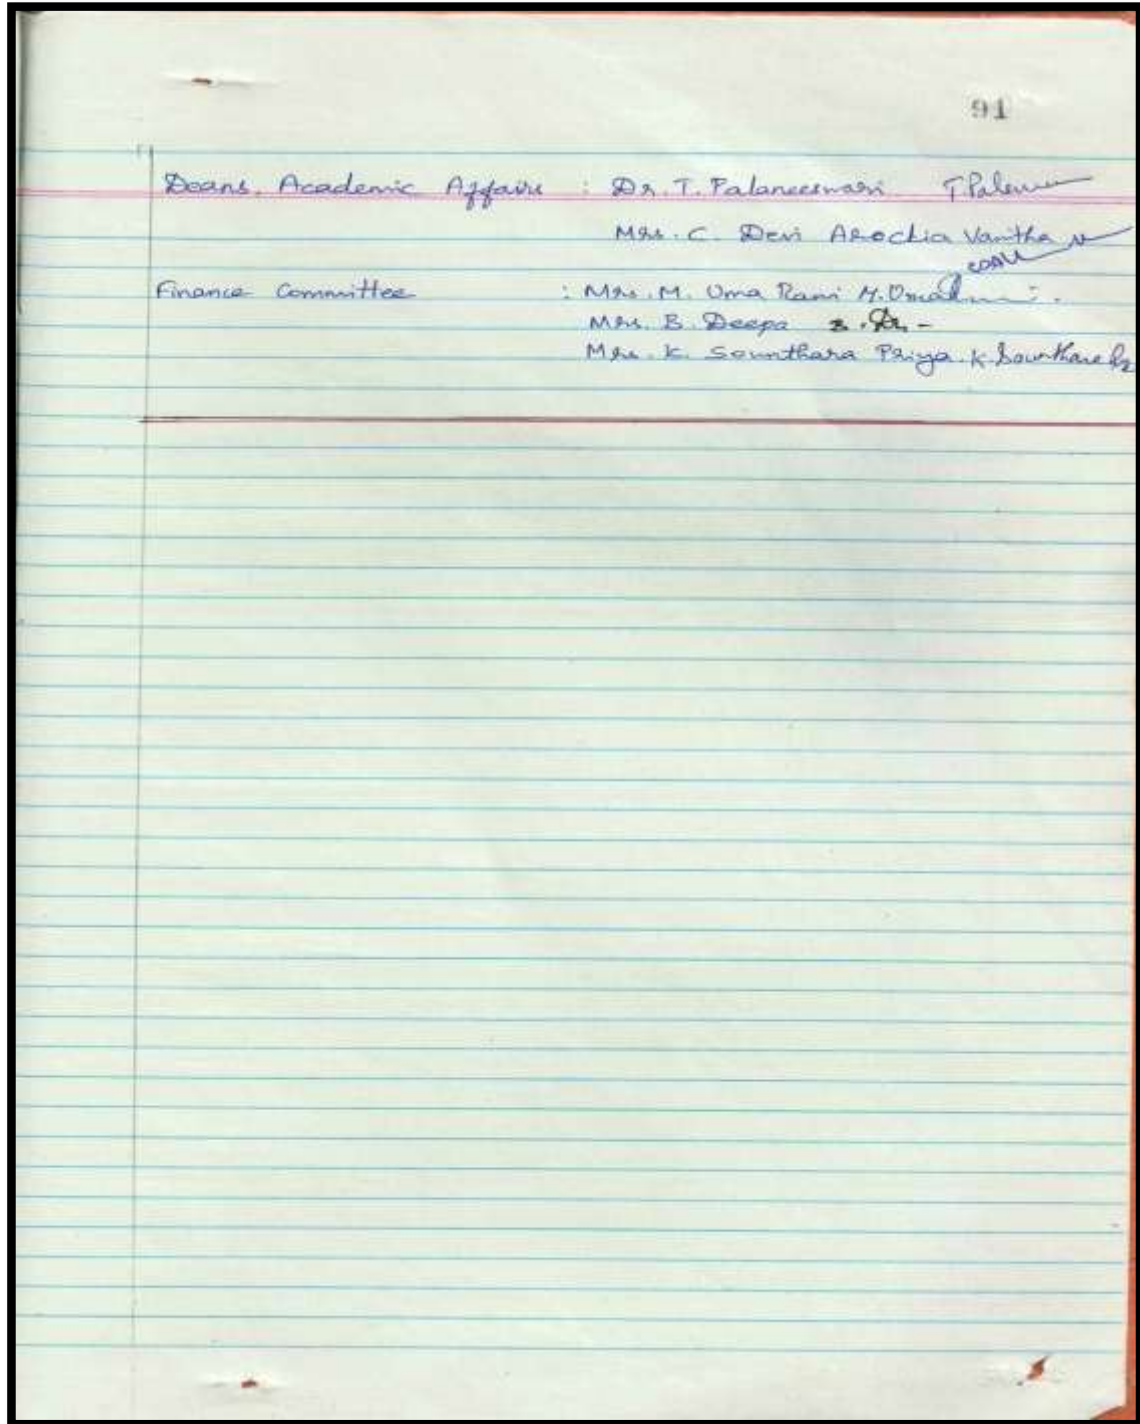 91
Deans, Academic Affairs : Dr. T. Palaneeswari T. Palan
Mrs. C. Devi Arockia Vanitha
CDAV
Finance Committee : Mrs. M. Uma Rani M. Uma
Mrs. B. Deepa B.
Mrs. K. Sounthara Priya K. Sounthara